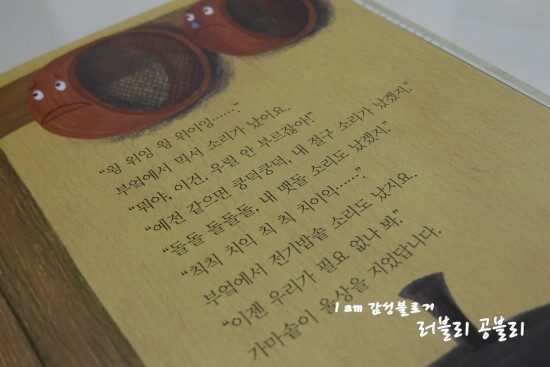 “윙 위잉 윙 위이잉……”
부엌에서 믹서 소리가 났어요.
“뭐야, 이젠 우릴 안 부르잖아!”
“예전 같으면 쿵덕쿵덕, 내 절구 소리가 났겠지.”
“돌돌 돌돌돌, 내 맷돌 소리도 났겠지.”
“칙칙 치익 칙 칙 치이익……”
부엌에서 전기밥솥 소리도 났지요.
“이젠 우리가 필요 없나 봐.”
가마솥이 울상을 지었답니다.
I am 감성블로거
러블리 공블리